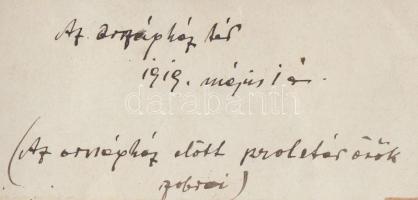 Az országház tér
1919. május 1 én.
(Az országház előtt proletár őrök
szobrai)
darabanth